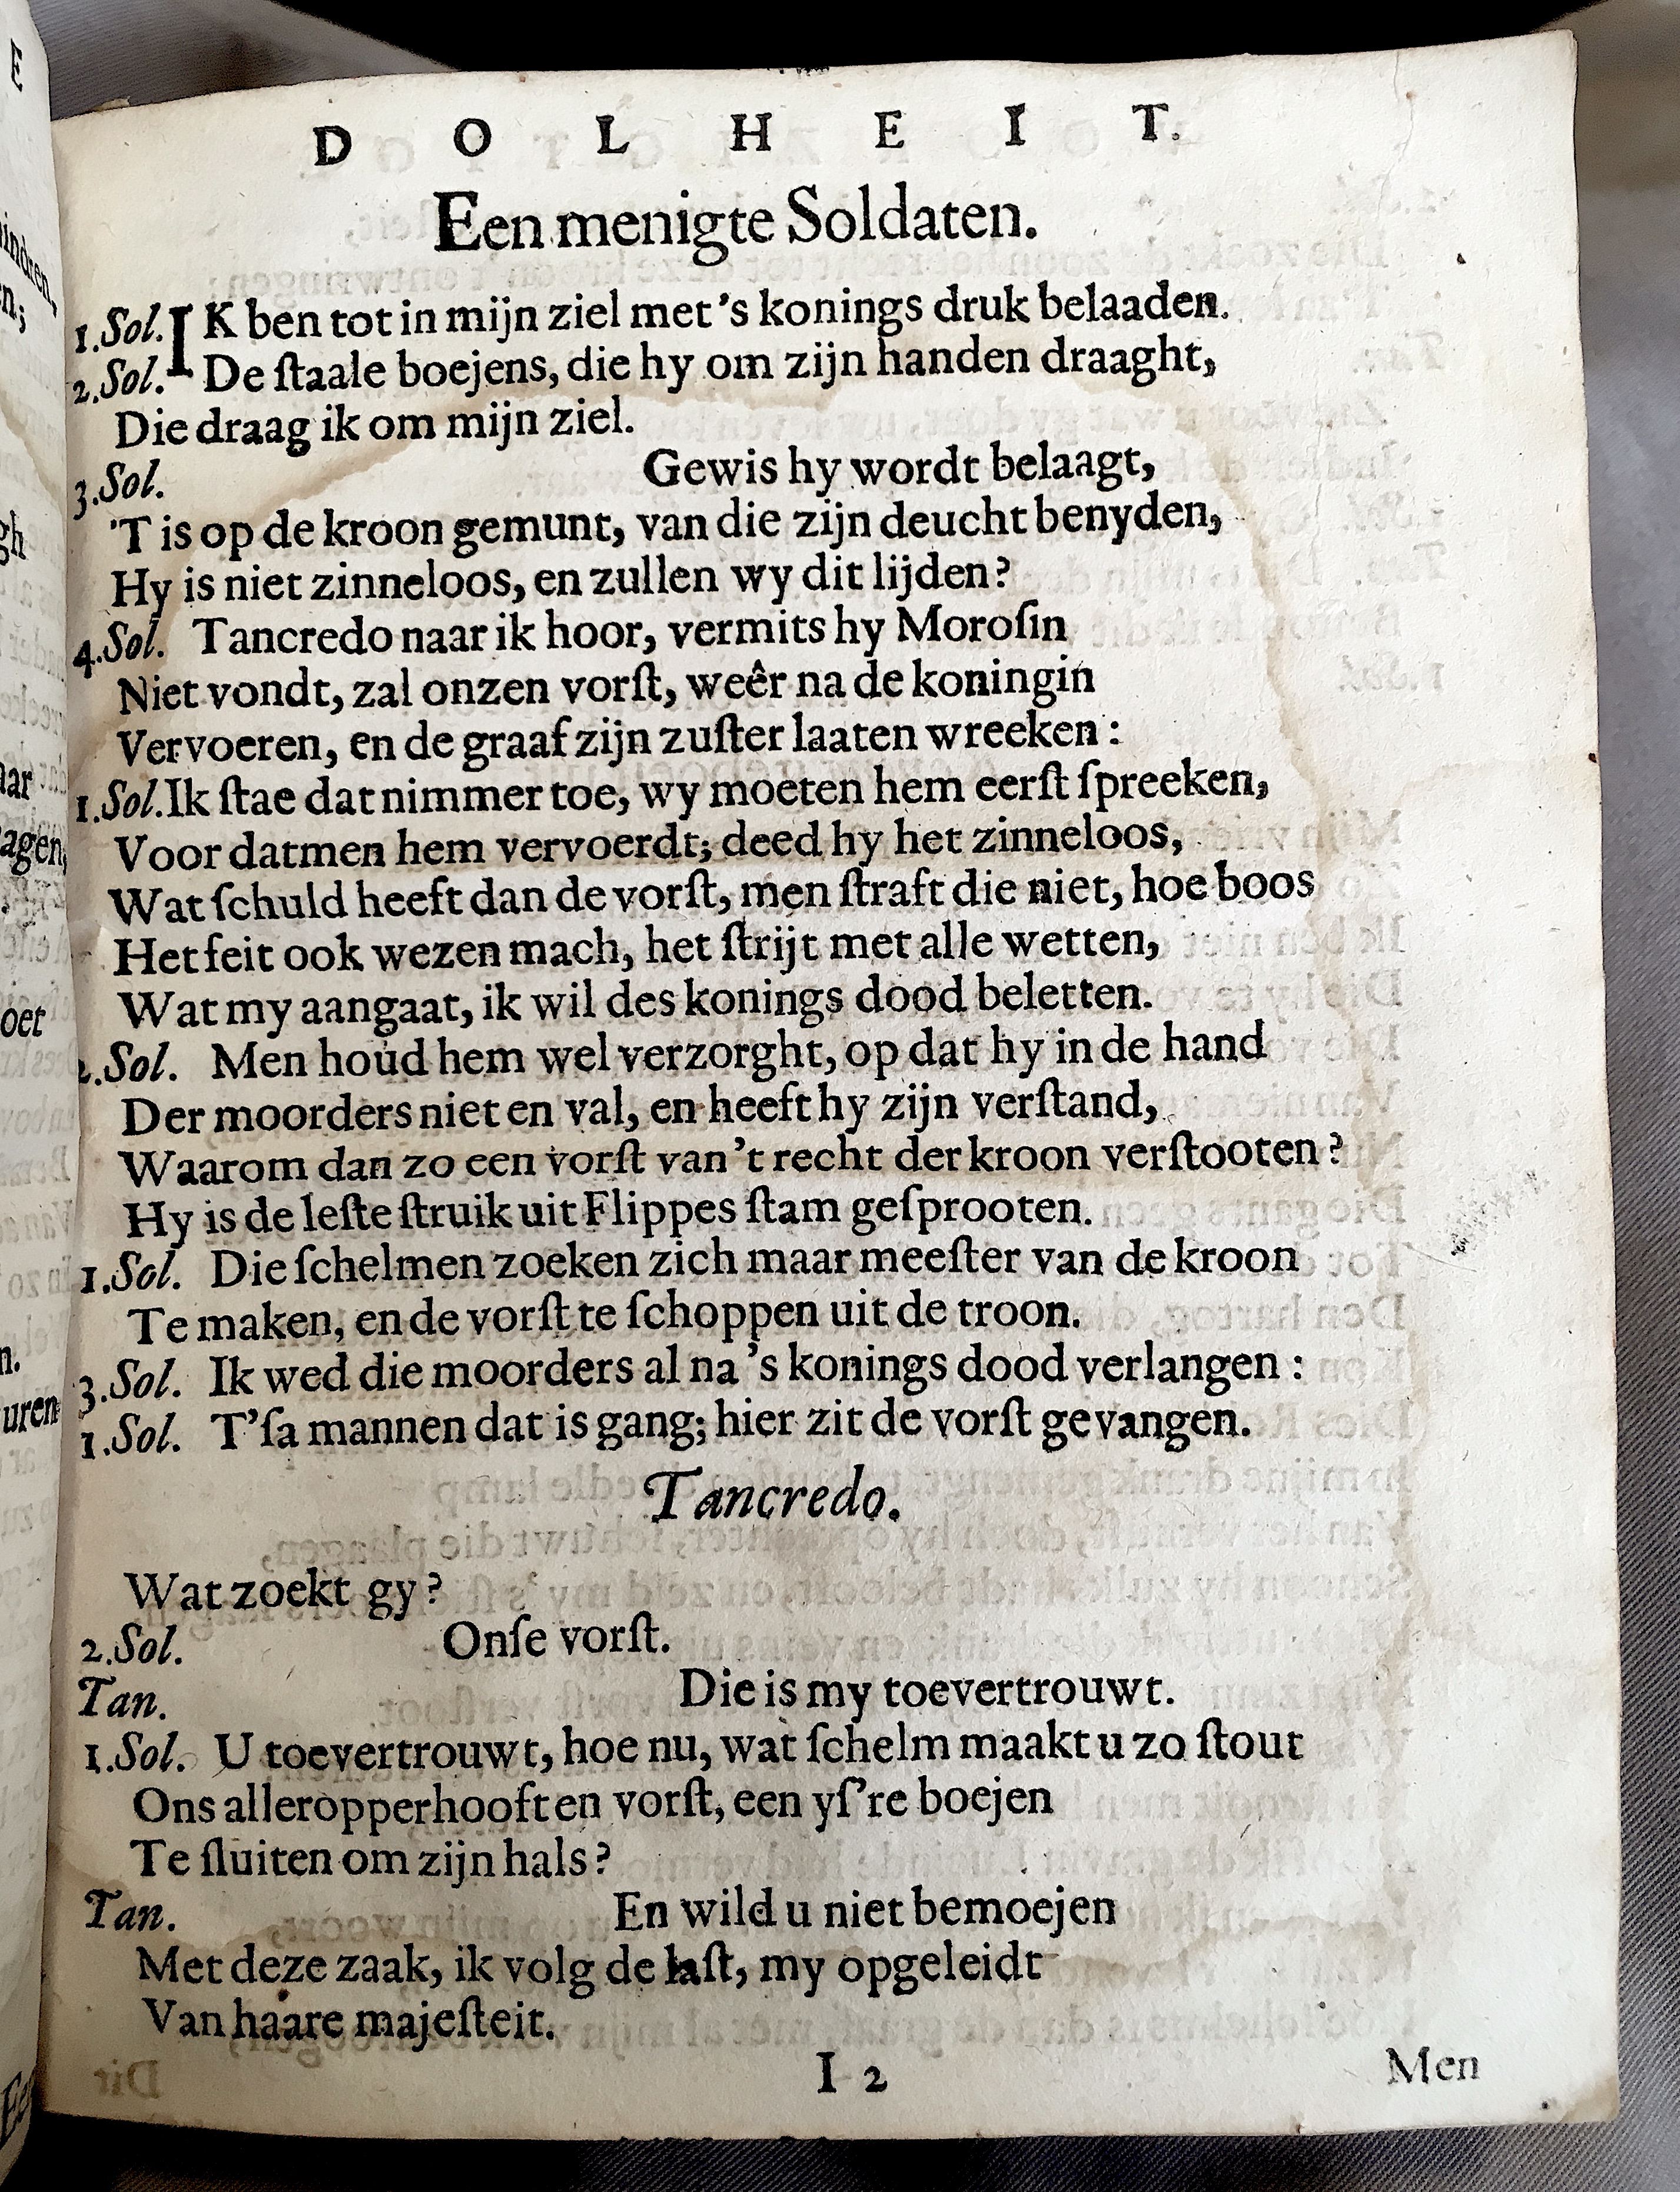 D O L H E I T.
Een menigte Soldaten.
1.Sol. IK ben tot in mijn ziel met 's konings druk belaaden.
2.Sol. De ſtaale boejens, die hy om zijn handen draaght,
Die draag ik om mijn ziel.
3.Sol. Gewis hy wordt belaagt,
'T is op de kroon gemunt, van die zijn deucht benyden,
Hy is niet zinneloos, en zullen wy dit lijden?
4.Sol. Tancredo naar ik hoor, vermits hy Moroſin
Niet vondt, zal onzen vorſt, weêr na de koningin
Vervoeren, en de graaf zijn zuſter laaten wreeken:
1.Sol. Ik ſtae dat nimmer toe, wy moeten hem eerſt ſpreeken,
Voor datmen hem vervoerdt; deed hy het zinneloos,
Wat ſchuld heeft dan de vorſt, men ſtraft die niet, hoe boos
Het feit ook wezen mach, het ſtrijt met alle wetten,
Wat my aangaat, ik wil des konings dood beletten.
2.Sol. Men houd hem wel verzorght, op dat hy in de hand
Der moorders niet en val, en heeft hy zijn verſtand,
Waarom dan zo een vorſt van 't recht der kroon verſtooten?
Hy is de leſte ſtruik uit Flippes ſtam geſprooten.
1.Sol. Die ſchelmen zoeken zich maar meeſter van de kroon
Te maken, en de vorſt te ſchoppen uit de troon.
3.Sol. Ik wed die moorders al na 's konings dood verlangen:
1.Sol. T'ſa mannen dat is gang; hier zit de vorſt gevangen.
Tancredo.
Wat zoekt gy?
2.Sol. Onſe vorſt.
Tan. Die is my toevertrouwt.
1.Sol. U toevertrouwt, hoe nu, wat ſchelm maakt u zo ſtout
Ons alleropperhooft en vorſt, een yſ're boejen
Te ſluiten om zijn hals?
Tan. En wild u niet bemoejen
Met deze zaak, ik volg de laſt, my opgeleidt
Van haare majeſteit.
I 2
Men